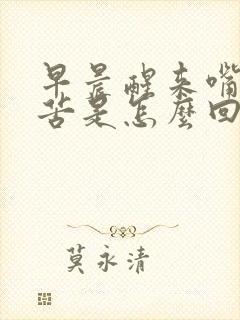 早晨醒来嘴
苦是怎麼回
莫永清